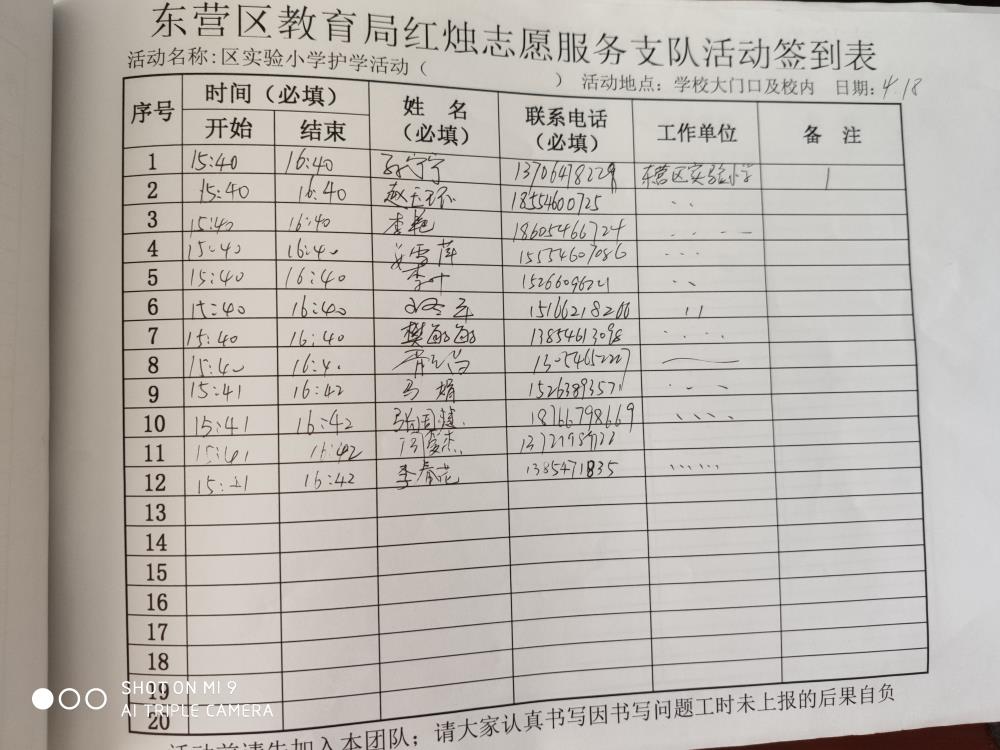 东营区教育局红烛志愿服务支队活动签到表
活动名称:区实验小学护学活动( ) 活动地点:学校大门口及校内 日期:4.18
序号 时间(必填) 姓名(必填) 联系电话(必填) 工作单位 备注
开始 结束
1 15:40 16:40 13706478229 东营区实验小学
2 15:40 16:40 赵玉环 18554600725
3 15:40 16:40 李艳 18605466724
4 15:40 16:40 姜雪萍 15554607086
5 15:40 16:40 李叶
6 15:40 16:40 15166218266
7 15:40 16:40 樊函函 13854613098
8 15:40 16:40
9 15:41 16:42 马娟
10 15:41 16:42 18766798669
11 15:41 16:42
12 15:41 16:42 李春花 1385471835
13
14
15
16
17
18
19
20
SHOT ON MI 9
AI TRIPLE CAMERA
活动前请先加入本团队;请大家认真书写因书写问题工时未上报的后果自负